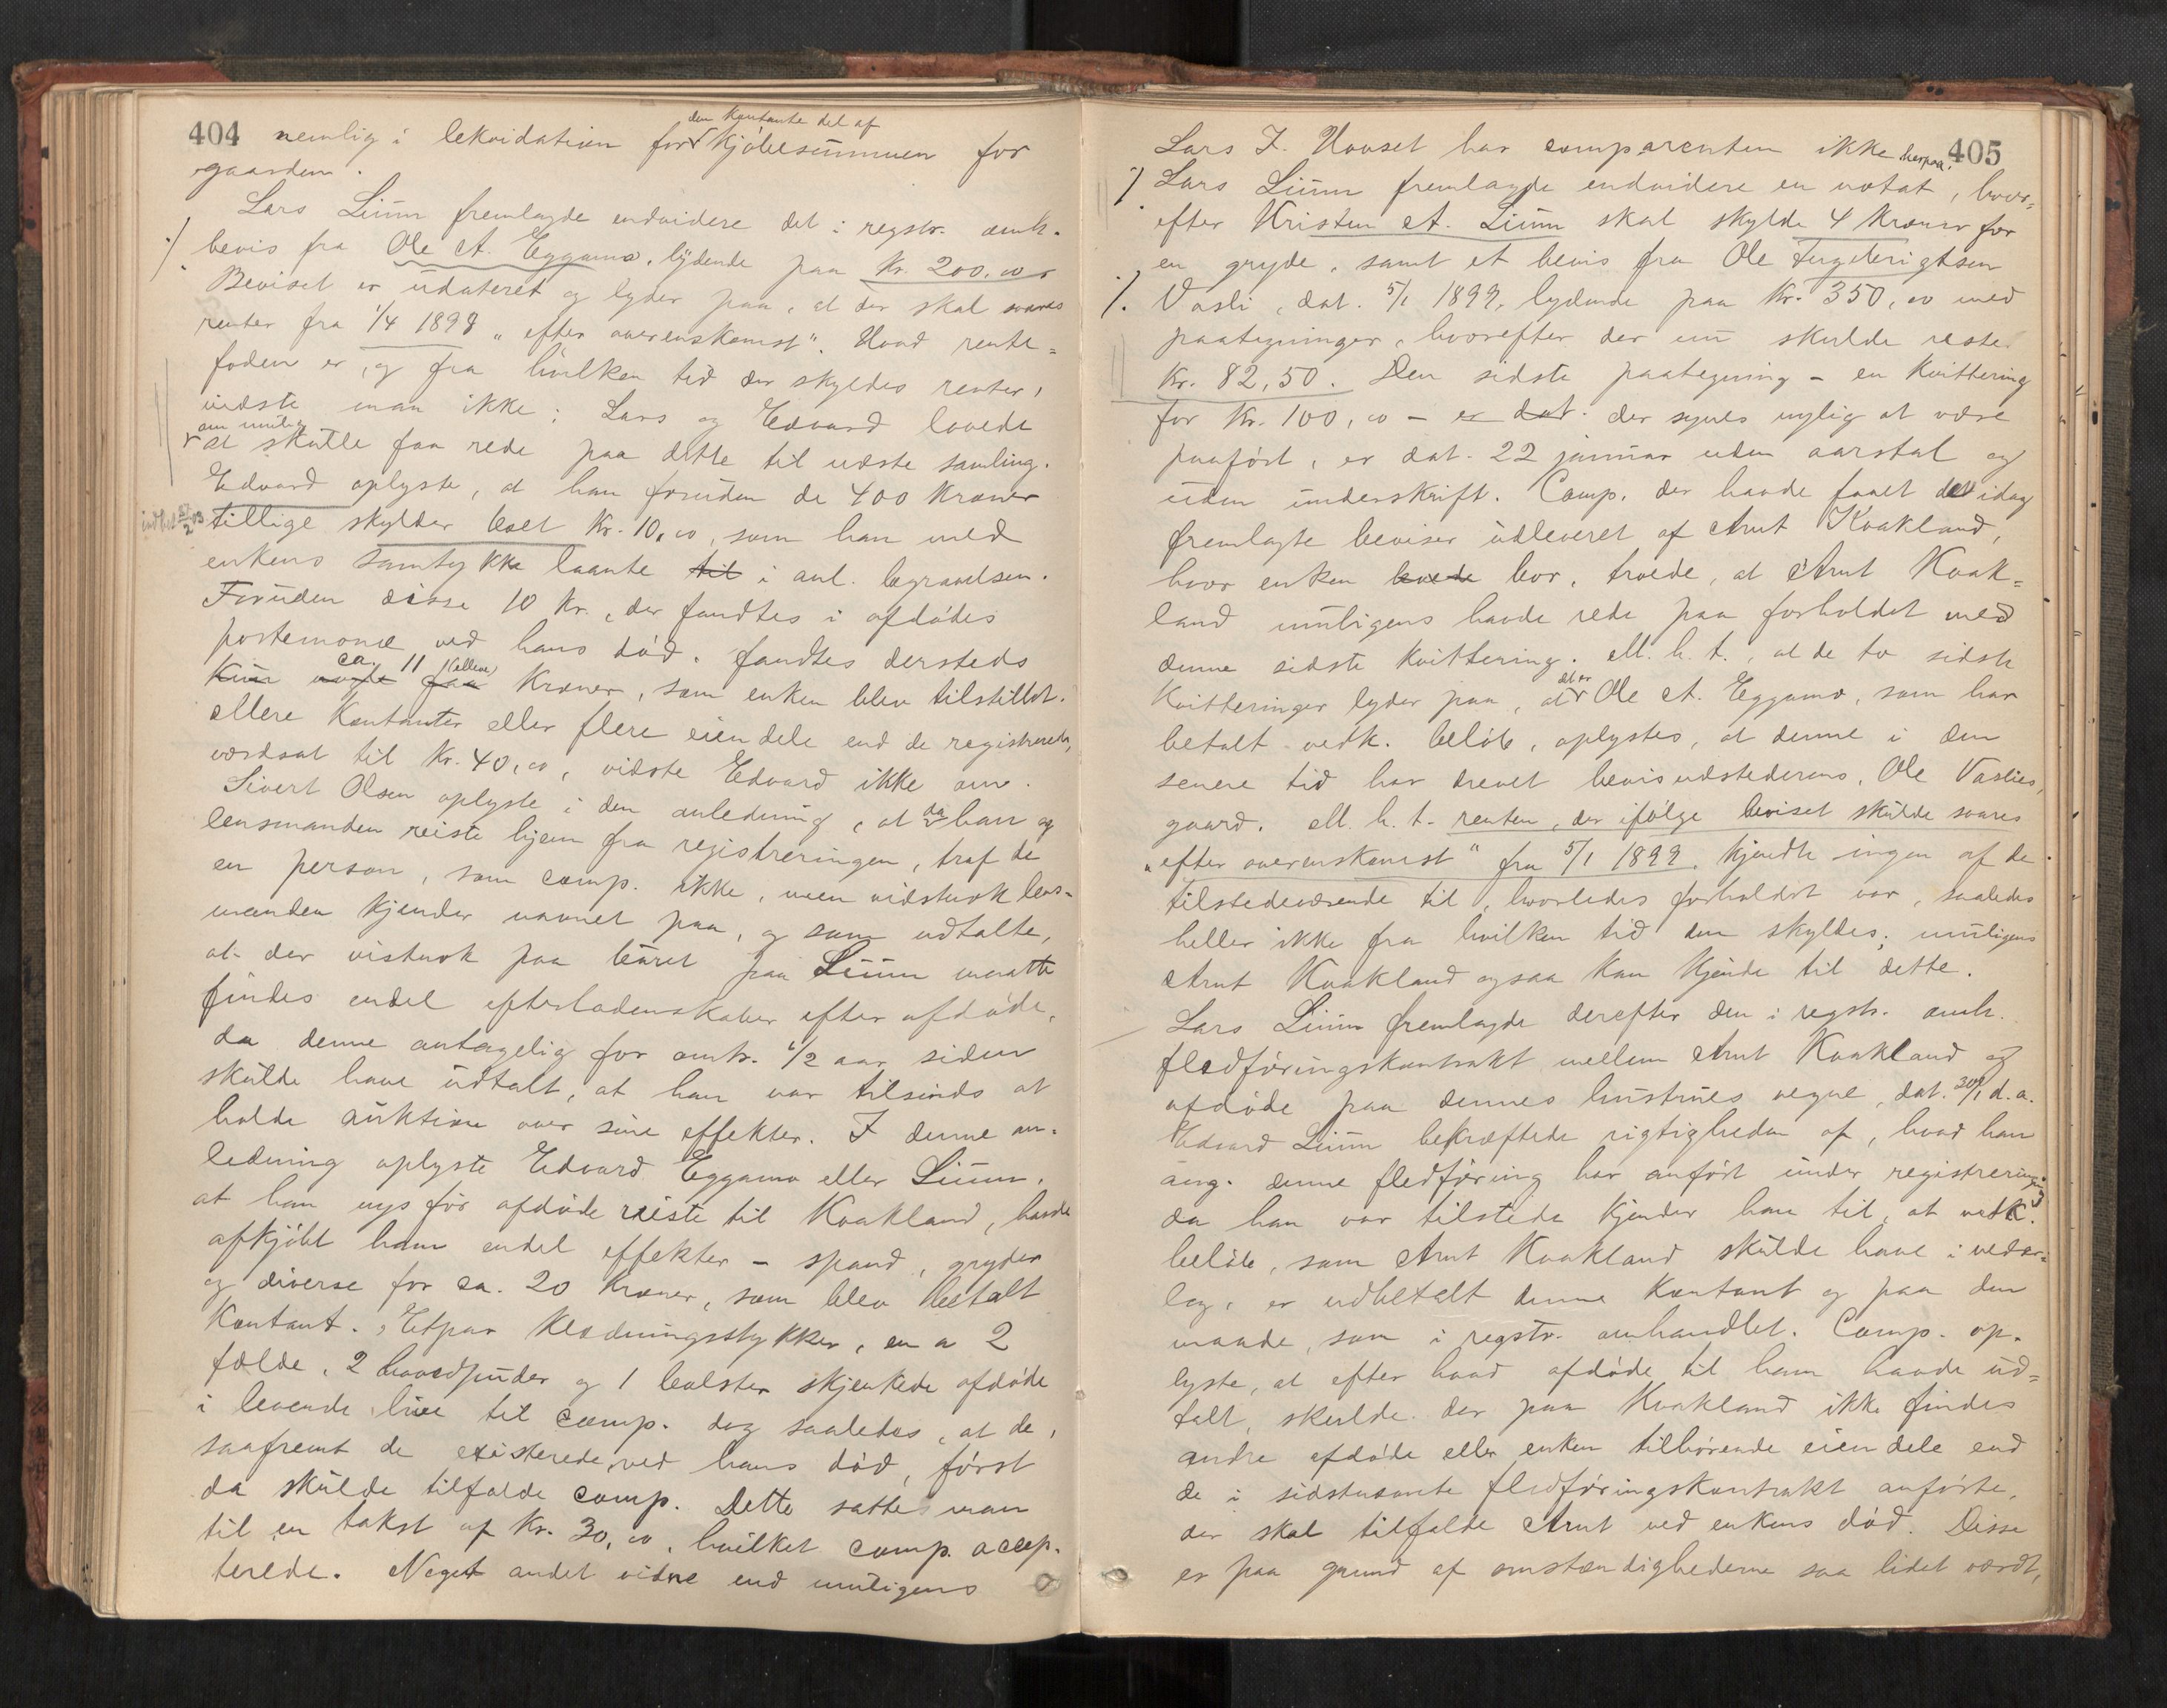 404 nemlig i lekvidation for den kontante del af kjöbesummen for
gaarden.
Lars Liium fremlagde endvidere det i regstr. omh.
bevis fra Ole A. Eggamo, lydende paa Kr. 200,00
Beviset er udateret og lyder paa, at der skal svares
renter fra 1/4 1898 "efter overenskomst". Hvad rente=
foden er, og fra hvilken tid der skyldes renter,
vidste man ikke; Lars og Edvard lovede
om mulig at skulle faa rede paa dette til næste samling.
Edvard oplyste, at han foruden de 400 kroner
tillige skylder boet Kr. 10,00, som han med
enkens samtykke laante til i anl. begravelsen.
Foruden disse 10 kr., der fandtes i afdödes
portemonæ ved hans död, fandtes dersteds
kun nogle faa ca. 11 (elleve) kroner, som enken blev tilstillet.
Mere kontanter eller flere eiendele end de registrerede,
værdsat til Kr. 40,00, vidste Edvard ikke om.
Sivert Olsen oplyste i den anledning, at da han og
lensmanden reiste hjem fra registreringen, traf de
en person, som comp. ikke, men vidstnok lens-
manden kjender navnet paa, og som udtalte,
at der vistnok paa buret paa Liium maatte
findes endel efterladenskaber efter afdöde,
da denne antagelig for omtr. 1/2 aar siden
skulde have udtalt, at han var tilsinds at
holde auktion over sine effekter. I denne an-
ledning oplyste Edvard Eggamo eller Liium,
at han nys för afdöde reiste til Kvakland, havde
afkjöbt ham endel effekter - spand, gryder
og diverse for ca. 20 kroner, som blev betalt
kontant. Etpar klædningsstykker, en a 2
fælde, 2 hovedpuder og 1 bolster skjenkede afdöde
i levende live til comp. dog saaledes, at de,
saafremt de existerede ved hans död, först
da skulde tilfalde comp. Dette sattes man
til en takst af Kr. 30,00, hvilket comp. accep-
terede. Noget andet vidne end muligens
405
Lars I. Hovset har comparenten ikke herpaa.
Lars Liium fremlagde endvidere en notat, hvor=
efter Kristen A. Liium skal skylde 4 kroner for
en gryde, samt et bevis fra Ole
Vasli, dat. 5/1 1899, lydende paa Kr. 350,00 med
paategninger, hvorefter der nu skulde reste
Kr. 82,50. Den sidste paategning - en kvittering
for Kr. 100,00 - er dat. der synes nylig at være
paafört, er dat. 22 januar uden aarstal og
uden underskrift. Comp. der havde faaet de idag
fremlagte beviser udleveret af Arnt Kvakland,
hvor enken boede bor, troede, at Arnt Kvak=
land muligens havde rede paa forholdet med
denne sidste kvittering. M. h. t., at de to sidste
kvitteringer lyder paa, at det er Ole A. Eggamo, som har
betalt vedk. belöb, oplystes, at denne i den
senere tid har drevet bevisudstederens, Ole Vaslies,
gaard. M. h. t. renten, der ifölge beviset skulde svares
"efter overenskomst" fra 5/1 1899, kjendte ingen af de
tilstedeværende til, hvorledes forholdet var, saaledes
heller ikke fra hvilken tid den skyldes; muligens
Arnt Kvakland ogsaa kan kjende til dette.
Lars Liium fremlagde derefter den i regstr. omh.
fledföringskontrakt mellem Arnt Kvakland og
afdöde paa dennes hustrues vegne, dat. 30/1 d. a.
Edvard Liium bekræftede rigtigheden af, hvad han
ang. denne fledföring har anfört under registreringen;
da han var tilstede kjender han til, at vedk.
belöb, som Arnt Kvakland skulde have i veder-
lag, er udbetalt denne kontant og paa den
maade, som i regstr. omhandlet. Comp. op-
lyste, at efter hvad afdöde til ham havde ud=
talt, skulde der paa Kvakland ikke findes
andre afdöde eller enken tilhörende eiendele end
de i sidstnævnte fledföringskontrakt anförte,
der skal tilfalde Arnt ved enkens död. Disse
er paa grund af omstændighederne saa lidet værdt,